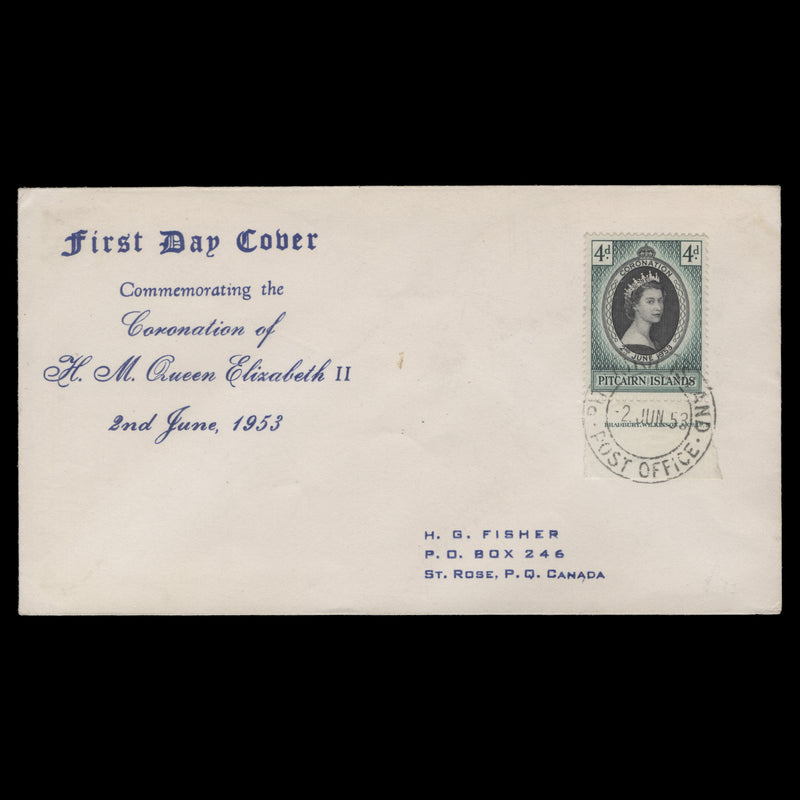 First Day Cover
Commemorating the
Coronation of
H. M. Queen Elizabeth II
2nd June, 1953
4d. 4d.
CORONATION
2ND JUNE 1953
PITCAIRN ISLANDS
-2 JUN 53
BRADBURY, WILKINSON
POST OFFICE
H. G. FISHER
P. O. BOX 246
ST. ROSE, P. Q. CANADA